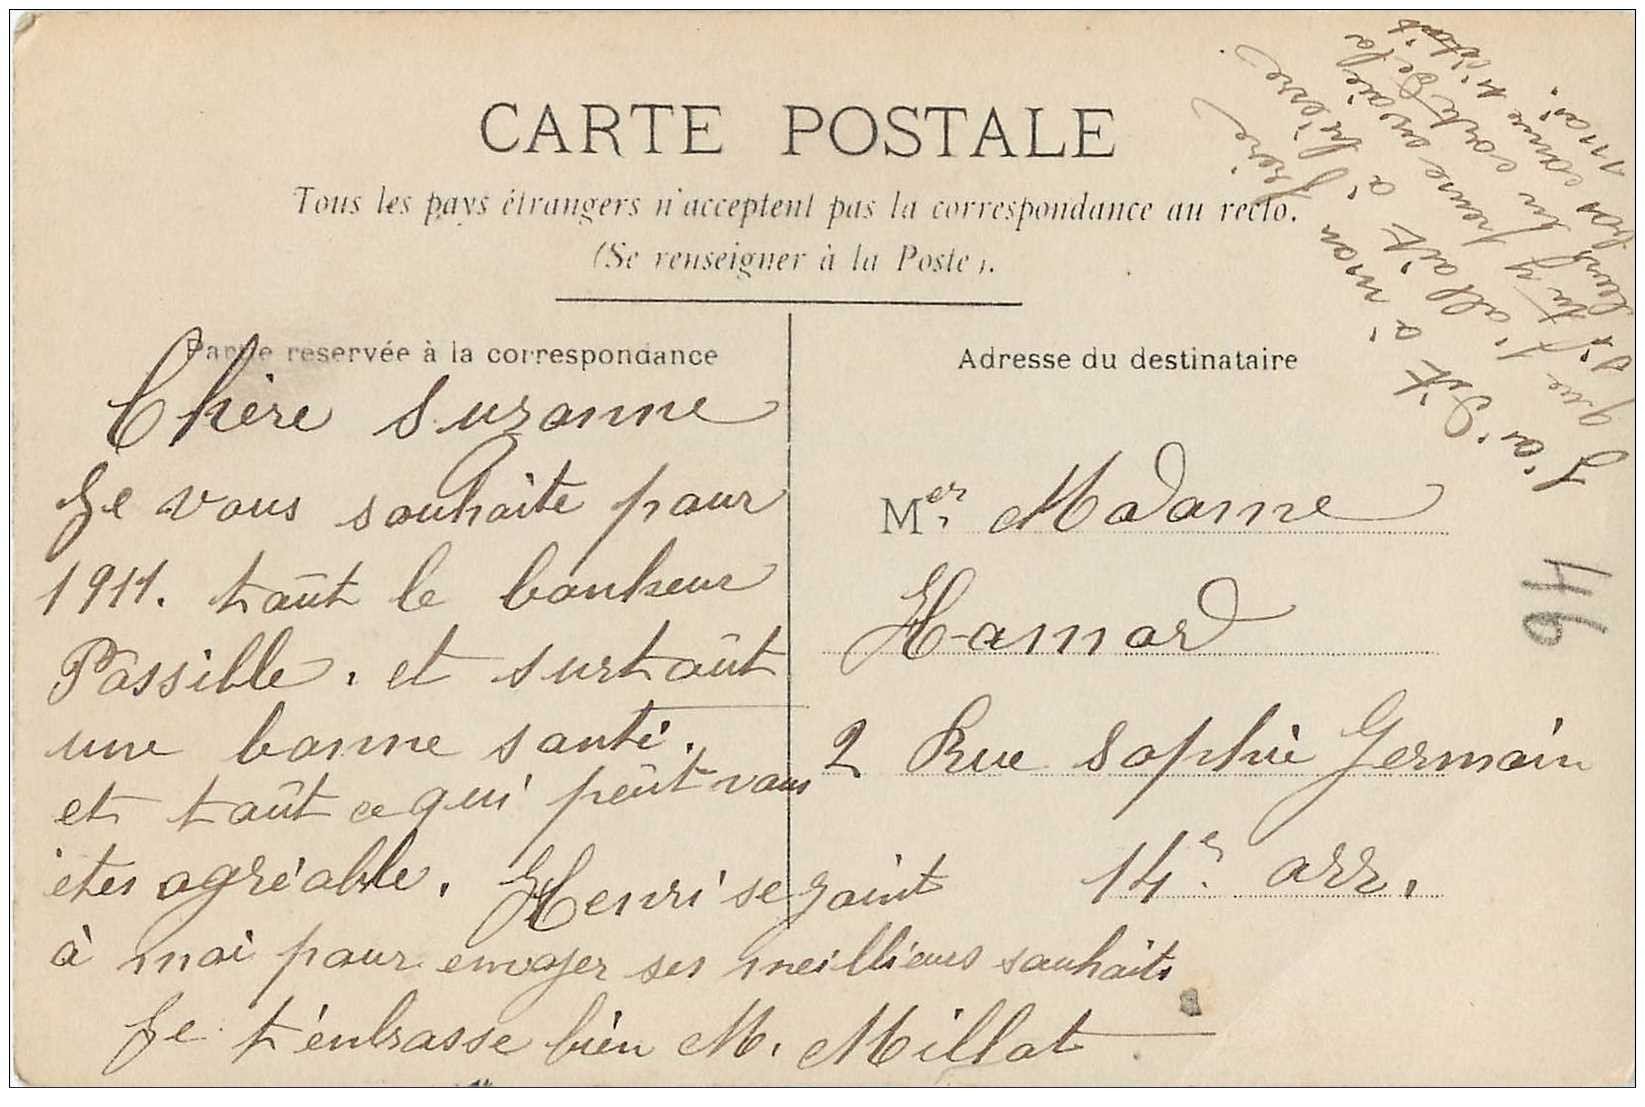 CARTE POSTALE
Tous les pays étrangers n'acceptent pas la correspondance au recto.
(Se renseigner à la Poste).
Partie reservée à la correspondance
Chère Suzanne
Je vous souhaite pour
1911. toût le bonheur
Possible. et surtoût
une bonne santé.
et toût ce qui peût vous
êtes agréable. Henri se joint
à moi pour envoyer ses meillieurs souhaits
Je t'enbrasse bien M. Millot
Adresse du destinataire
Mer. Madame
Hamard
2 Rue Sophie Germain
14e. arr.
94
J'ai dit à mon frère
que j'allait à hièvre
dit y tu
moi.